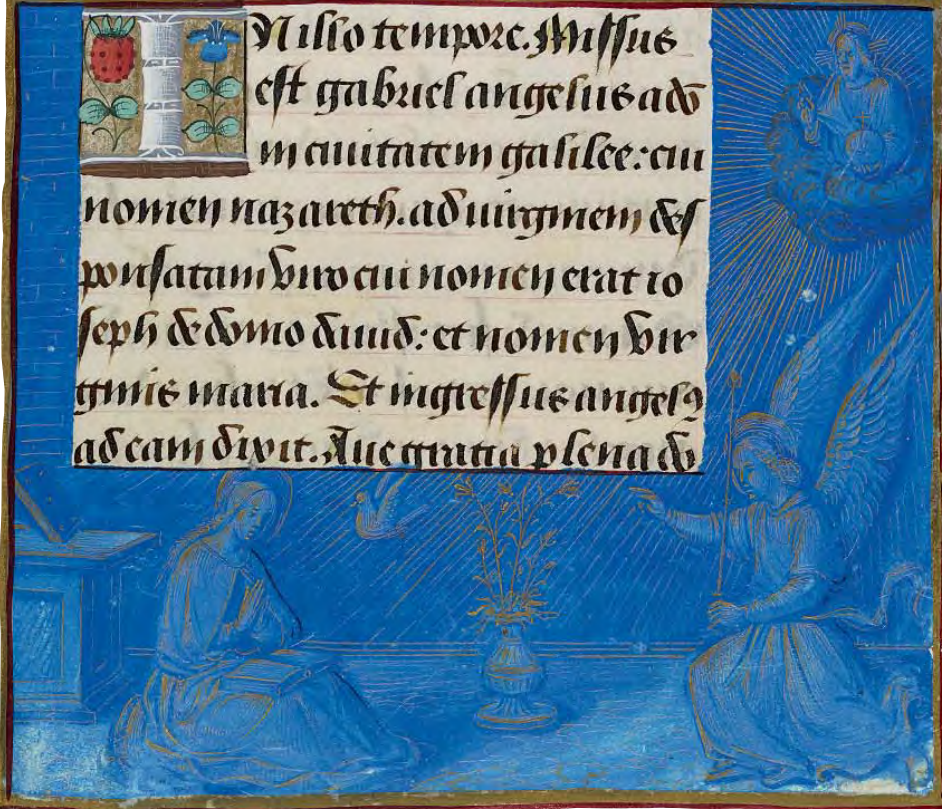 In illo tempore. Missus
est gabriel angelus a do
in ciuitatem galilee: cui
nomen nazareth. ad uirginem des
ponsatam viro cui nomen erat io
seph de domo dauid: et nomen vir
ginis maria. Et ingressus angelꝰ
ad eam dixit. Aue gratia plena do